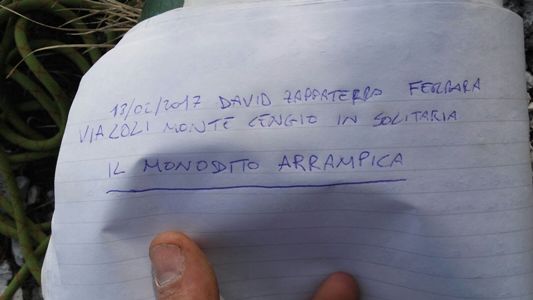 13/02/2017 DAVID ZAPPATERRO FERRARA
VIA LOLI MONTE CENGIO IN SOLITARIA
IL MONODITO ARRAMPICA